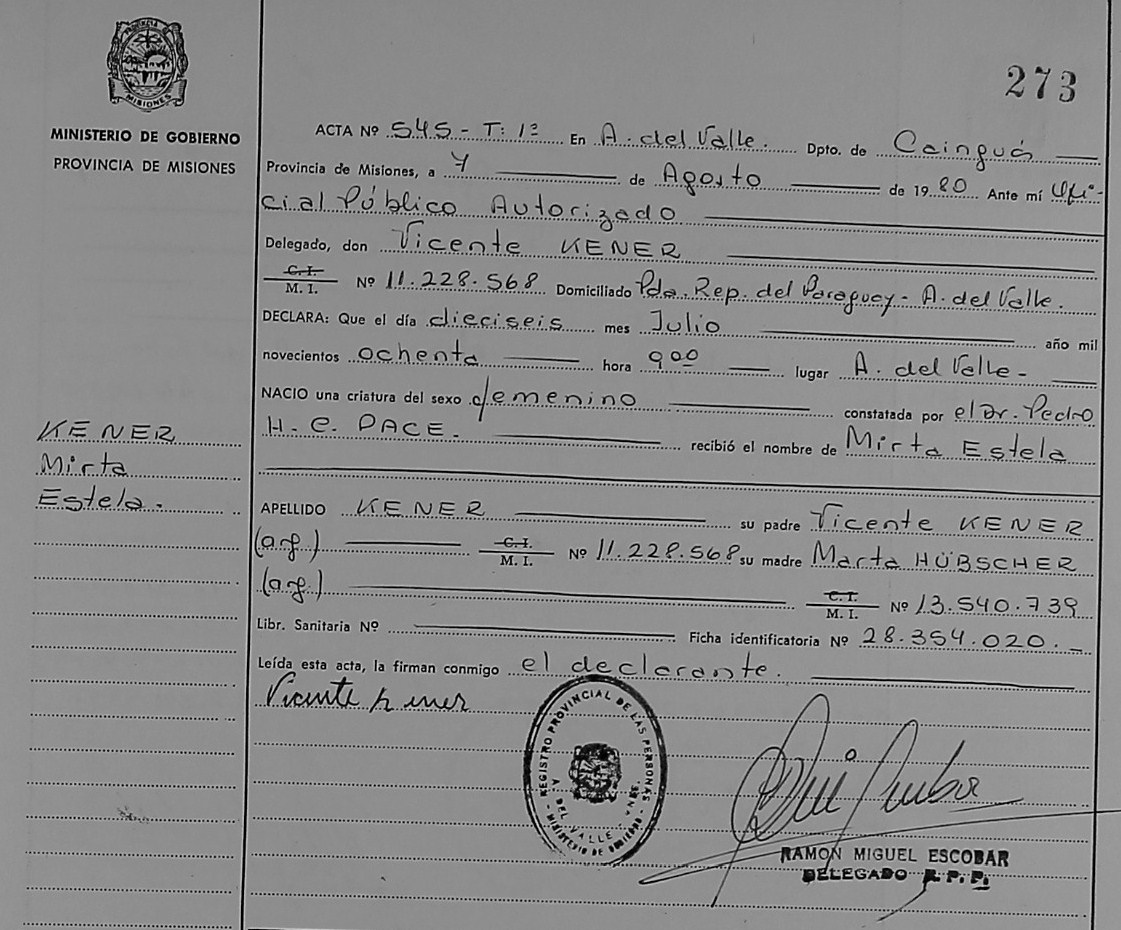 PROVINCIA D
MISIONES
MINISTERIO DE GOBIERNO
PROVINCIA DE MISIONES
273
ACTA Nº 545 - T: 1º En A. del Valle. Dpto. de Cainguás
Provincia de Misiones, a 7 de Agosto de 1980 Ante mí Ofi-
cial Público Autorizado
Delegado, don Vicente KENER
C.I. / M. I. Nº 11.228.568 Domiciliado Pda. Rep. del Paraguay - A. del Valle.
DECLARA: Que el día dieciseis mes Julio año mil
novecientos ochenta hora 9 00 lugar A. del Valle -
NACIO una criatura del sexo femenino constatada por el Dr. Pedro
H. C. PACE. recibió el nombre de Mirta Estela
KENER
Mirta
Estela.
APELLIDO KENER su padre Vicente KENER
(arg.) C.I. / M. I. Nº 11.228.568 su madre Marta HÜBSCHER
(arg.) C.I. / M. I. Nº 13.540.739
Libr. Sanitaria Nº Ficha identificatoria Nº 28.354.020. -
Leída esta acta, la firman conmigo el declarante.
Vicente Kener
REGISTRO PROVINCIAL DE LAS PERSONAS
A. DEL VALLE
MINISTERIO DE GOBIERNO
RAMON MIGUEL ESCOBAR
DELEGADO R. P. P.